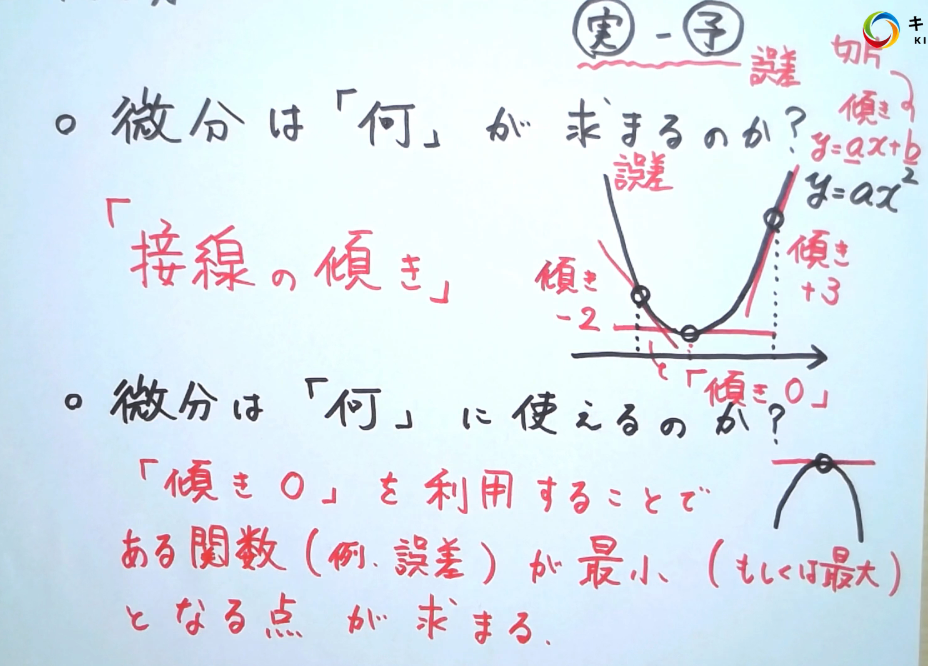 実 - 予
誤差
キ
KI
切片
傾き
y=ax+b
y=ax²
○ 微分は「何」が求まるのか?
誤差
「接線の傾き」
傾き
-2
傾き
+3
「傾き0」
○ 微分は「何」に使えるのか?
「傾き0」を利用することで
ある関数(例.誤差)が最小、(もしくは最大)
となる点が求まる.